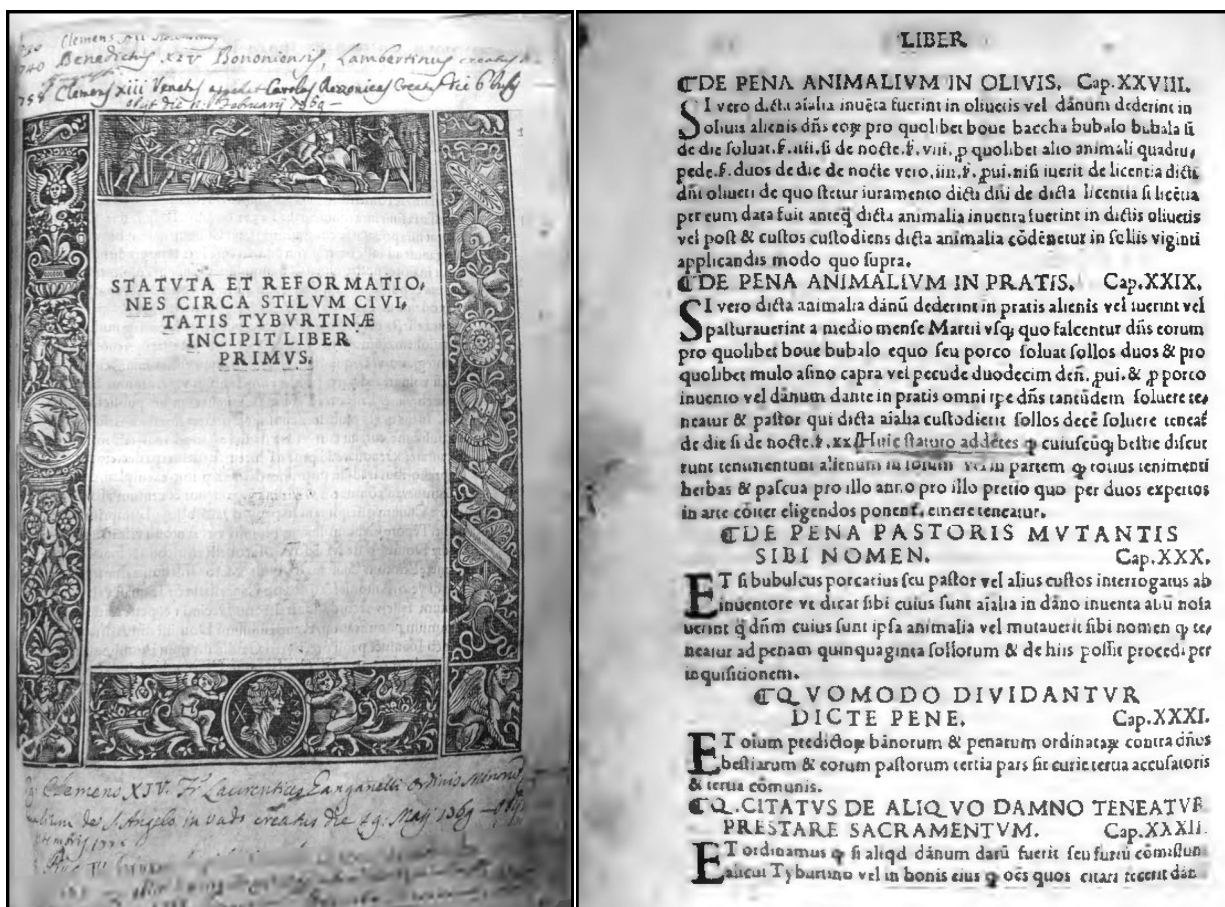 Clemens XII
1740 Benedictus XIV Bononiensis, Lambertinus creatus
1758 Clemens xiii Venetus Carolus Rezzonicus Creatus die 6
obijt die Februarij 1769 —
STATVTA ET REFORMATIO,
NES CIRCA STILVM CIVI,
TATIS TYBVRTINÆ
INCIPIT LIBER
PRIMVS.
Clemens XIV. Fr Laurentius Ganganelli Ordinis Minorum
S. Angelo in vado creatus die 19: Maij 1769 —
LIBER
⸿DE PENA ANIMALIVM IN OLIVIS. Cap.XXVIII.
SI vero dicta aı̄alia inuēta fuerint in oliuetis vel dānum dederint in
oliuis alienis dn̄s eoꝝ pro quolibet boue baccha bubalo bubala si
de die soluat.ẜ.iiii.si de nocte.ẜ.viii. ꝑ quolibet alio animali quadru,
pede.ẜ.duos de die de nocte vero.iiii.ẜ.ꝓui.nisi iuerit de licentia dicti
dn̄i oliueti de quo stetur iuramento dicti dn̄i de dicta licentia si licētia
per eum data fuit anteq̄ dicta animalia inuenta fuerint in dictis oliuetis
vel post & custos custodiens dicta animalia cōdēnetur in sollis viginti
applicandis modo quo supra.
⸿DE PENA ANIMALIVM IN PRATIS. Cap.XXIX.
SI vero dicta animalia dānū dederint in pratis alienis vel iuerint vel
pasturauerint a medio mense Martii vsq; quo falcentur dn̄s eorum
pro quolibet boue bubalo equo seu porco soluat sollos duos & pro
quolibet mulo asino capra vel pecude duodecim den̄. ꝓui. & ꝑ porco
inuento vel dānum dante in pratis omni tꝑe dn̄s tantūdem soluere te,
neatur & pastor qui dicta aı̄alia custodierit sollos decē soluere teneat̄
de die si de nocte.ẜ.xx. Huic statuto addētes ꝙ cuiuscūq; bestie discur
runt tenimentum alienum in totum vel in partem ꝙ totius tenimenti
herbas & pascua pro illo anno pro illo pretio quo per duos expertos
in arte cōiter eligendos ponet̄, emere teneatur.
⸿DE PENA PASTORIS MVTANTIS
SIBI NOMEN. Cap.XXX.
ET si bubulcus porcarius seu pastor vel alius custos interrogatus ab
inuentore vt dicat sibi cuius sunt aı̄alia in dāno inuenta
uerint q̄ dn̄m cuius sunt ipsa animalia vel mutauerit sibi nomen ꝙ te,
neatur ad penam quinquaginta sollorum & de hiis possit procedi per
inquisitionem.
⸿QVOMODO DIVIDANTVR
DICTE PENE. Cap.XXXI.
ET oı̄um predictoꝝ bānorum & penarum ordinataꝝ contra dn̄os
bestiarum & eorum pastorum tertia pars sit curie tertia accusatoris
& tertia cōmunis.
⸿Q.CITATVS DE ALIQVO DAMNO TENEATVR
PRESTARE SACRAMENTVM. Cap.XXXII.
ET ordinamus ꝙ si aliqd dānum datū fuerit seu furtū cōmissum
alicui Tyburtino vel in bonis eius ꝙ oēs quos citari fecerit dān